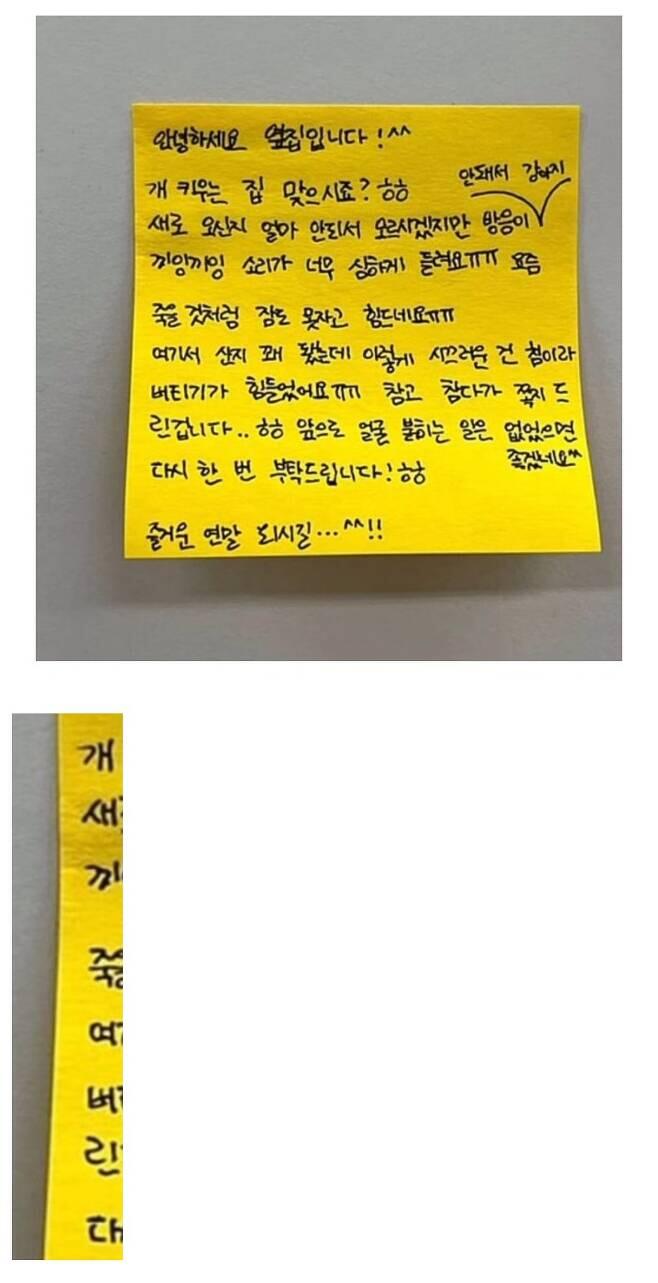 안녕하세요 옆집입니다! ^^
개 키우는 집 맞으시죠? ㅎㅎ
안돼서 강아지
새로 오신지 얼마 안되서 모르시겠지만 방음이
끼잉끼잉 소리가 너무 심하게 들려요ㅠㅠ 요즘
죽을 것처럼 잠도 못자고 힘드네요ㅠㅠ
여기서 산지 꽤 됐는데 이렇게 시끄러운 건 첨이라
버티기가 힘들었어요ㅠㅠ 참고 참다가 쪽지 드
린겁니다.. ㅎㅎ 앞으로 얼굴 붉히는 일은 없었으면
좋겠네요^^
다시 한 번 부탁드립니다! ㅎㅎ
즐거운 연말 되시길... ^^!!
개
새
끼
죽
여
버
린
다